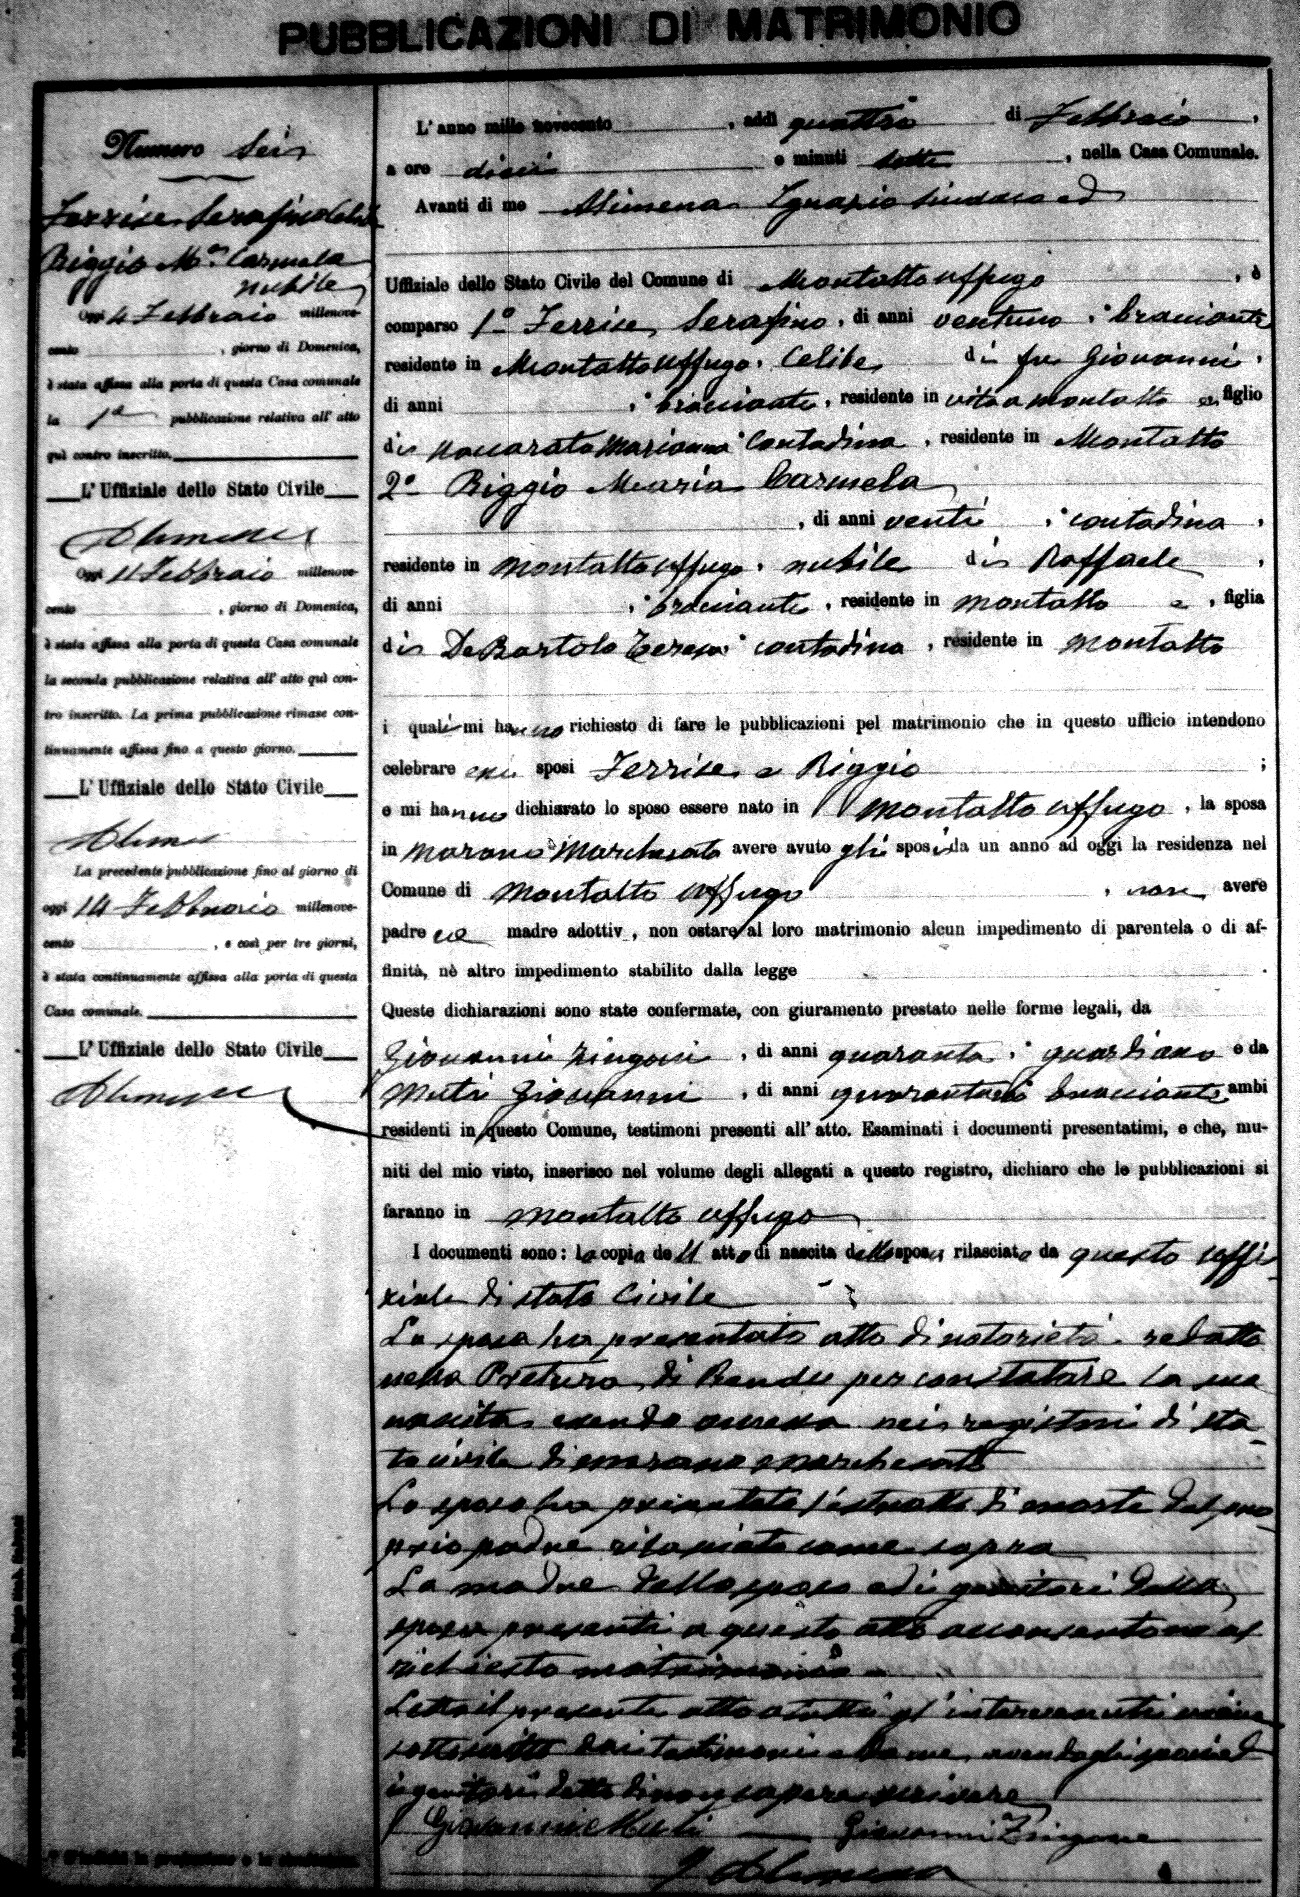 PUBBLICAZIONI DI MATRIMONIO
Numero Sei
Ferrise Serafino Celibe
Biggio Ma. Carmela
nubile
Oggi 4 Febbraio millenove-
cento , giorno di Domenica,
è stata affissa alla porta di questa Casa comunale
la 1a pubblicazione relativa all' atto
quì contro inscritto.
L' Uffiziale dello Stato Civile
Alimena
Oggi 11 Febbraio millenove-
cento , giorno di Domenica,
è stata affissa alla porta di questa Casa comunale
la seconda pubblicazione relativa all' atto quì con-
tro inscritto. La prima pubblicazione rimase con-
tinuamente affissa fino a questo giorno.
L' Uffiziale dello Stato Civile
Alimena
La precedente pubblicazione fino al giorno di
oggi 14 Febbraio millenove-
cento , e così per tre giorni,
è stata continuamente affissa alla porta di questa
Casa comunale.
L' Uffiziale dello Stato Civile
Alimena
L' anno mille novecento , addì quattro di Febbraio ,
a ore dieci e minuti sette , nella Casa Comunale.
Avanti di me Alimena Ignazio Sindaco ed
Uffiziale dello Stato Civile del Comune di Montalto Uffugo , è
comparso 1o Ferrise Serafino , di anni ventuno , bracciante
residente in Montalto Uffugo , Celibe di fu Giovanni ,
di anni , bracciante , residente in vita a Montalto e , figlio
di Naccarato Marianna contadina , residente in Montalto
2o Biggio Maria Carmela
, di anni venti , contadina ,
residente in Montalto Uffugo , nubile di Raffaele ,
di anni , bracciante , residente in Montalto e , figlia
di De Bartolo Teresa contadina , residente in Montalto
i quali mi hanno richiesto di fare le pubblicazioni pel matrimonio che in questo ufficio intendono
celebrare essi sposi Ferrise e Biggio ;
e mi hanno dichiarato lo sposo essere nato in Montalto Uffugo , la sposa
in Marano Marchesato avere avuto gli sposi da un anno ad oggi la residenza nel
Comune di Montalto Uffugo , non avere
padre nè madre adottiv , non ostare al loro matrimonio alcun impedimento di parentela o di af-
finità, nè altro impedimento stabilito dalla legge .
Queste dichiarazioni sono state confermate, con giuramento prestato nelle forme legali, da
Giovanni Zingoni , di anni quaranta , guardiano e da
Muti Giovanni , di anni bracciante ambi
residenti in questo Comune, testimoni presenti all' atto. Esaminati i documenti presentatimi, e che, mu-
niti del mio visto, inserisco nel volume degli allegati a questo registro, dichiaro che le pubblicazioni si
faranno in Montalto Uffugo
I documenti sono: la copia dell atto di nascita dello sposo rilasciata da questo uffi-
ziale di stato Civile
La sposa ha presentato atto di notorietà redatto
nella Pretura di Rende per constatare la sua
nascita essendo omessa nei registri di sta-
to civile di Marano Marchesato
Lo sposo ha presentato l'estratto di morte del pro-
prio padre rilasciato come sopra
La madre dello sposo ed i genitori della
sposa presenti a questo atto acconsentono al
richiesto matrimonio
Letto il presente atto a tutti gl'intervenuti viene
sottoscritto dai testimoni e da me, avendo gli sposi ed
i genitori detto di non sapere scrivere
Giovanni Muti Giovanni Zingone
I Alimena